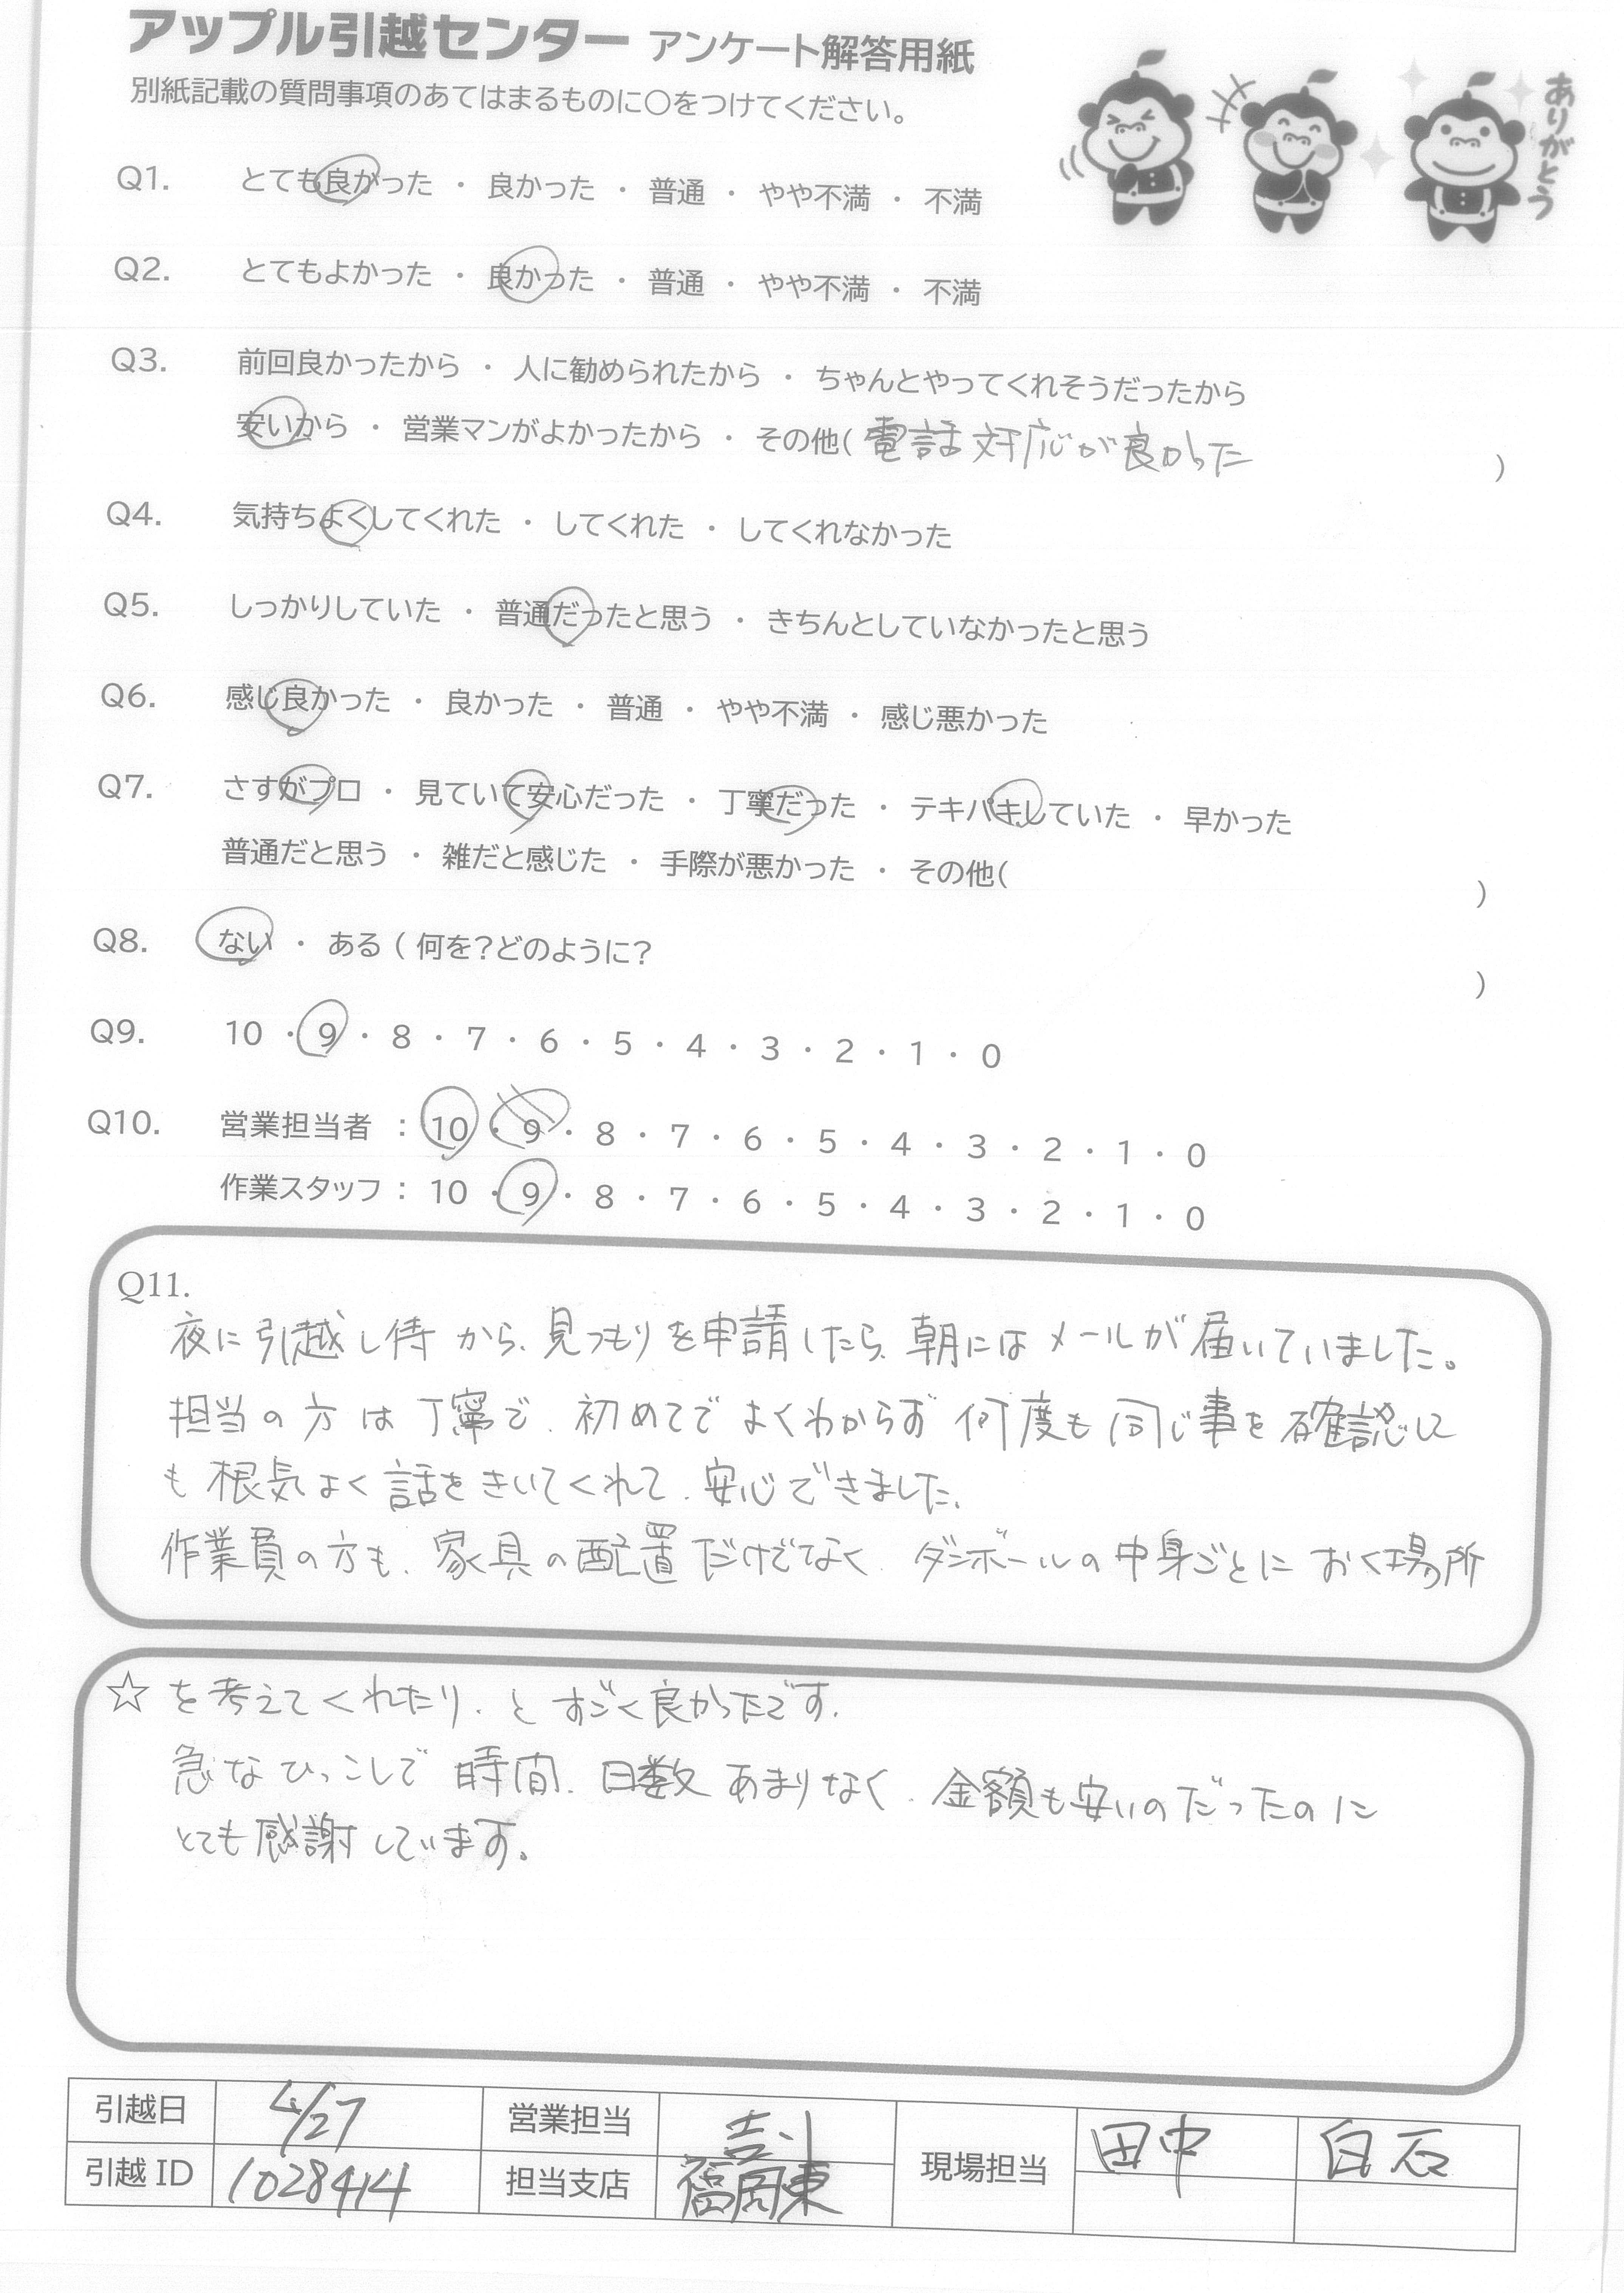 アップル引越センター アンケート解答用紙
別紙記載の質問事項のあてはまるものに○をつけてください。
ありがとう
Q1. とても良かった ・ 良かった ・ 普通 ・ やや不満 ・ 不満
Q2. とてもよかった ・ 良かった ・ 普通 ・ やや不満 ・ 不満
Q3. 前回良かったから ・ 人に勧められたから ・ ちゃんとやってくれそうだったから
安いから ・ 営業マンがよかったから ・ その他( 電話対応が良かった )
Q4. 気持ちよくしてくれた ・ してくれた ・ してくれなかった
Q5. しっかりしていた ・ 普通だったと思う ・ きちんとしていなかったと思う
Q6. 感じ良かった ・ 良かった ・ 普通 ・ やや不満 ・ 感じ悪かった
Q7. さすがプロ ・ 見ていて安心だった ・ 丁寧だった ・ テキパキしていた ・ 早かった
普通だと思う ・ 雑だと感じた ・ 手際が悪かった ・ その他( )
Q8. ない ・ ある ( 何を?どのように? )
Q9. 10 ・ 9 ・ 8 ・ 7 ・ 6 ・ 5 ・ 4 ・ 3 ・ 2 ・ 1 ・ 0
Q10. 営業担当者 : 10 ・ 9 ・ 8 ・ 7 ・ 6 ・ 5 ・ 4 ・ 3 ・ 2 ・ 1 ・ 0
作業スタッフ : 10 ・ 9 ・ 8 ・ 7 ・ 6 ・ 5 ・ 4 ・ 3 ・ 2 ・ 1 ・ 0
Q11.
夜に引越し侍から、見つもりを申請したら、朝にはメールが届いていました。
担当の方は丁寧で、初めてでよくわからず何度も同じ事を確認して
も根気よく話をきいてくれて、安心できました。
作業員の方も、家具の配置だけでなく、ダンボールの中身ごとにおく場所
☆ を考えてくれたり、とすごく良かったです。
急なひっこしで時間、日数あまりなく、金額も安いのだったのに
とても感謝しています。
引越日 4/27 営業担当 現場担当 田中 白石
引越 ID 1028414 担当支店 福岡東